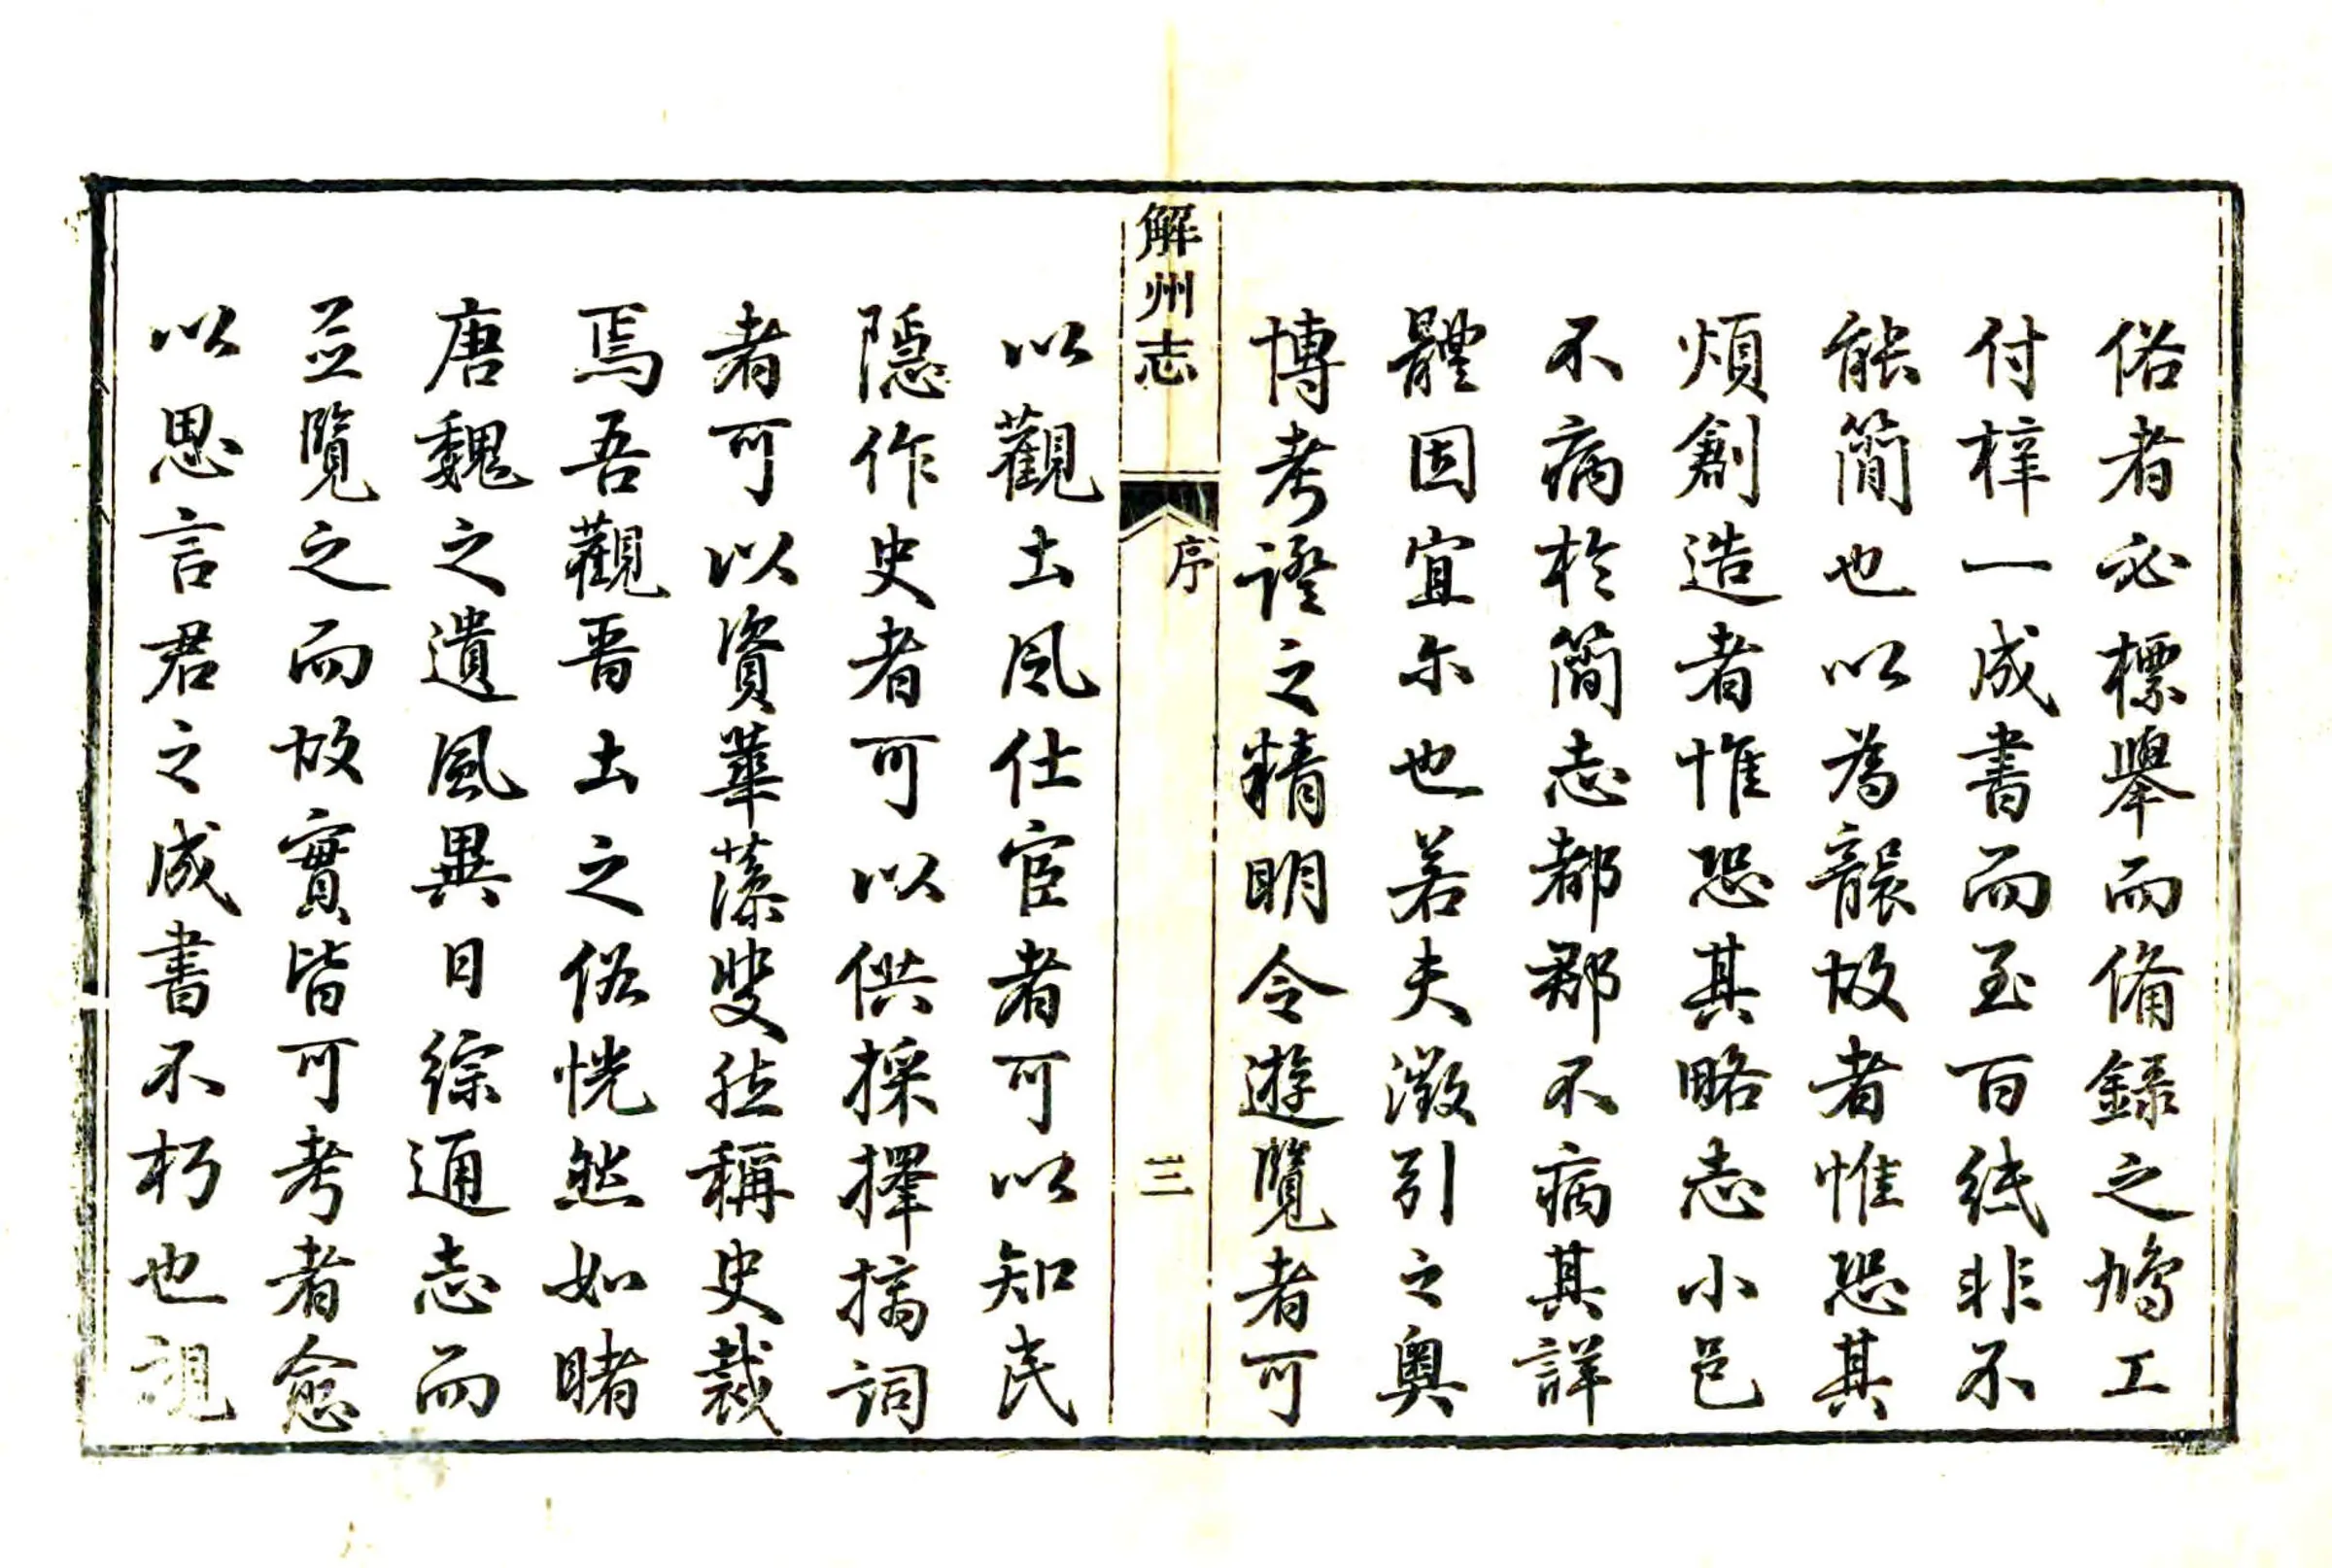 俗者必標舉而備錄之鳩工
付梓一成書而至百紙非不
能簡也以為襲故者惟恐其
煩創造者惟恐其略志小邑
不病於簡志都郡不病其詳
體因宜尓也若夫徵引之奧
博考證之精明令遊覽者可
解州志
序
三
以觀土風仕宦者可以知民
隱作史者可以供採擇摛詞
者可以資華藻斐然稱史裁
焉吾觀晉土之俗恍然如睹
唐魏之遺風異日綜通志而
並覽之而故實皆可考者愈
以思言君之成書不朽也